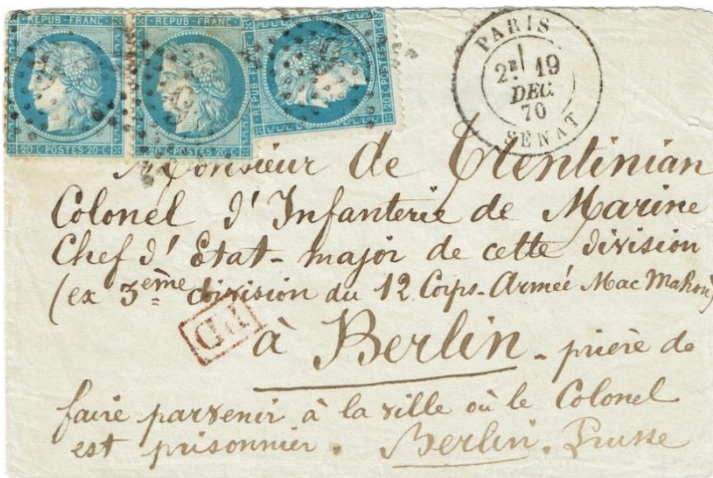 REPUB·FRANC·
REPUB·FRANC·
REPUB·FRANC·
20C·POSTES·20C
20C·POSTES·20C
20C·POSTES·20C
PARIS
2E 19
DEC.
70
SENAT
Monsieur de Trentinian
Colonel d'Infanterie de Marine
Chef d'Etat-major de cette division
(ex 3ème division du 12 Corps-Armée Mac Mahon)
PD
à Berlin - prière de
faire parvenir à la ville où le Colonel
est prisonnier. Berlin. Prusse